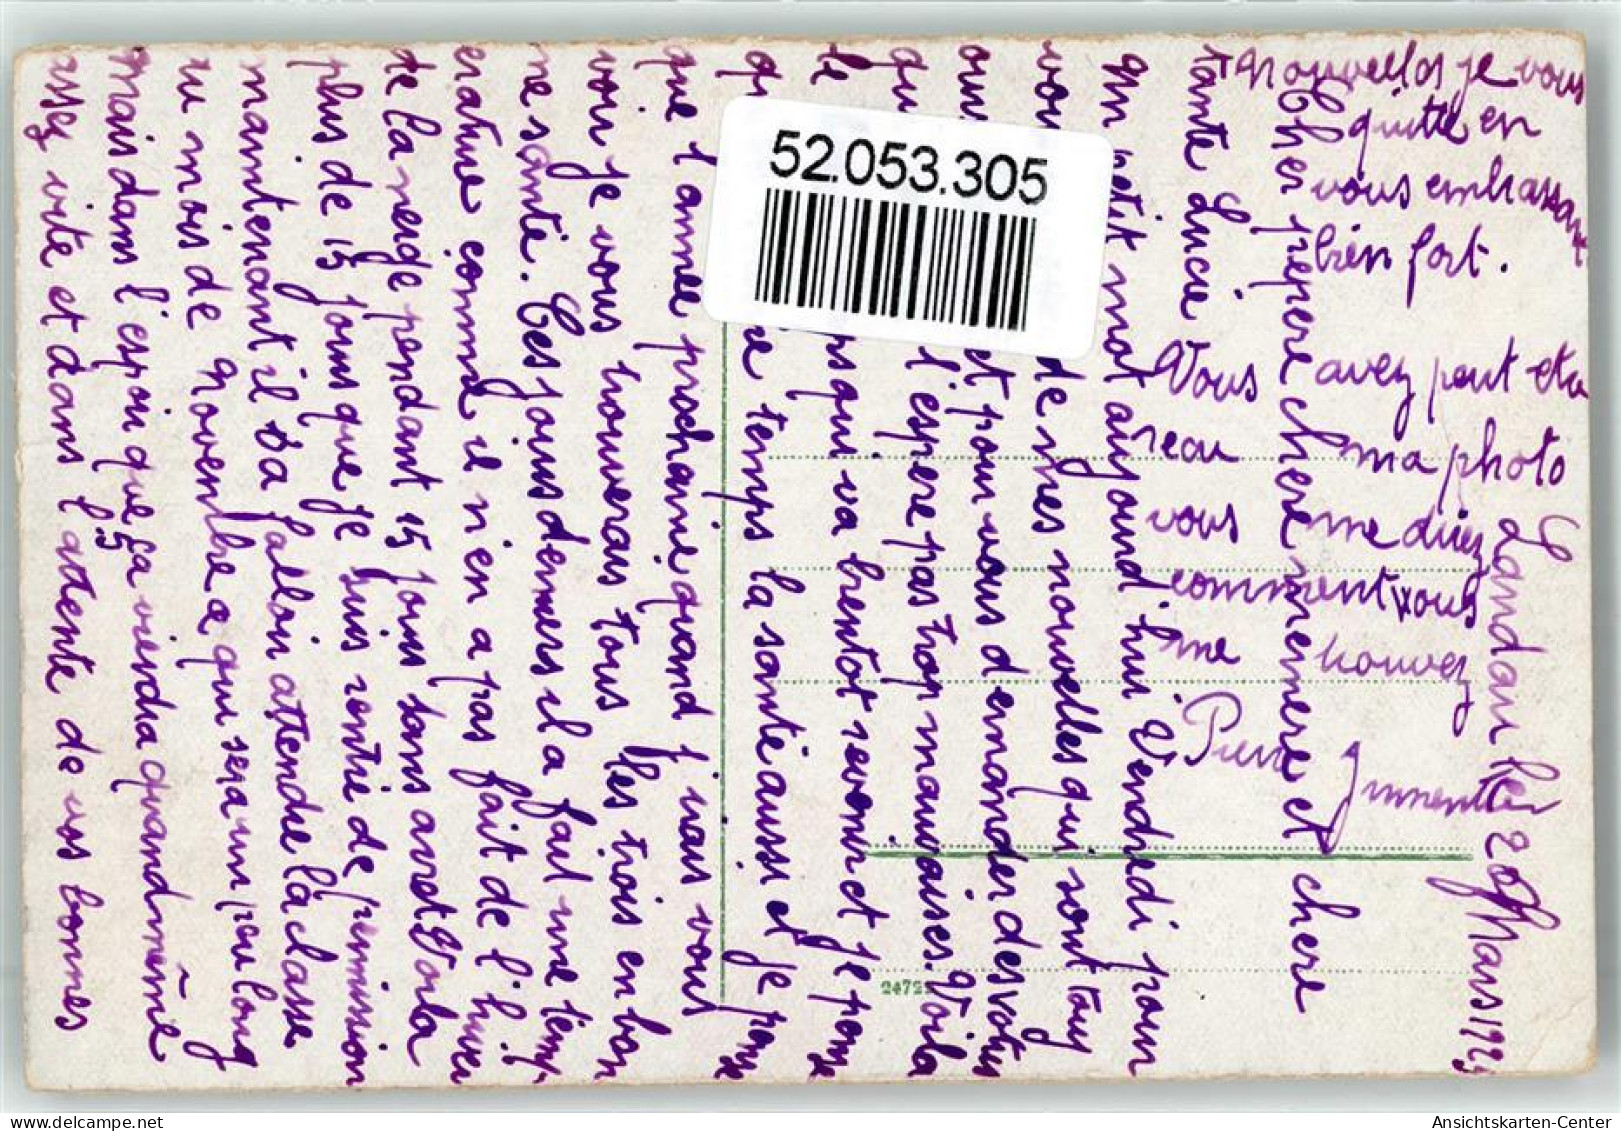 Landau le 20 Mars 1925
Cher pepere chere memere et chere
tante Lucie
Un petit mot aujourd'hui Vendredi pour
de mes nouvelles qui sont touj
et pour vous demander des votres
l'espere pas trop mauvaises. Voila
qui va bientot revenir et je pense
temps la santé aussi et je pense
que l'année prochaine quand j'irais vous
voir je vous trouverais tous les trois en bon
ne santé. Ces jours derniers il a fait une temp-
erature comme il n'en a pas fait de l'hiver
de la neige pendant 15 jours sans arret Voila
plus de 15 jours que je suis rentré de permission
maintenant il va falloir attendre la classe
au mois de Novembre a qui sera un peu long
mais dans l'espoir que ça viendra quand même
assez vite et dans l'attente de vos bonnes
nouvelles je vous
quitte en
vous embrassant
bien fort.
Vous avez peut etre
recu ma photo
vous me direz
comment vous
me trouvez
Pierre
52.053.305
2472
Ansichtskarten-Center